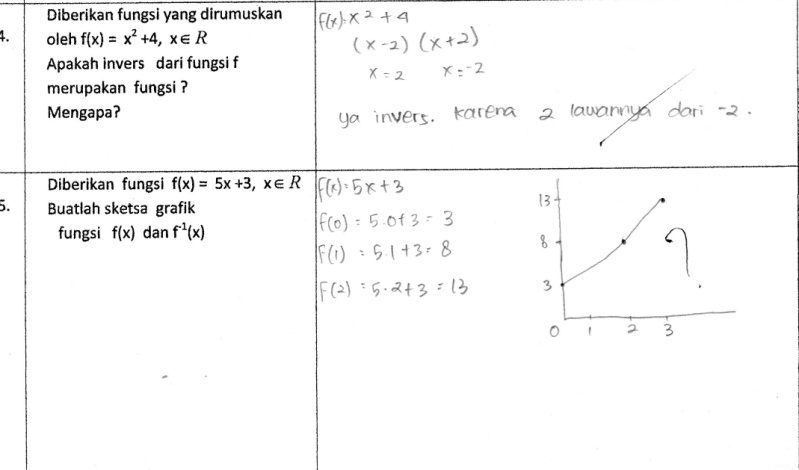 4.
Diberikan fungsi yang dirumuskan
oleh f(x) = x² +4, x∈ R
Apakah invers dari fungsi f
merupakan fungsi ?
Mengapa?
f(x)=x² + 4
(x-2) (x+2)
x = 2 x = -2
ya invers. karena 2 lawannya dari -2.
5.
Diberikan fungsi f(x) = 5x +3, x∈ R
Buatlah sketsa grafik
fungsi f(x) dan f⁻¹(x)
f(x)=5x+3
f(0) = 5.0+3 = 3
f(1) = 5.1+3 = 8
f(2) = 5.2+3 = 13
13
8
3
0 1 2 3
?